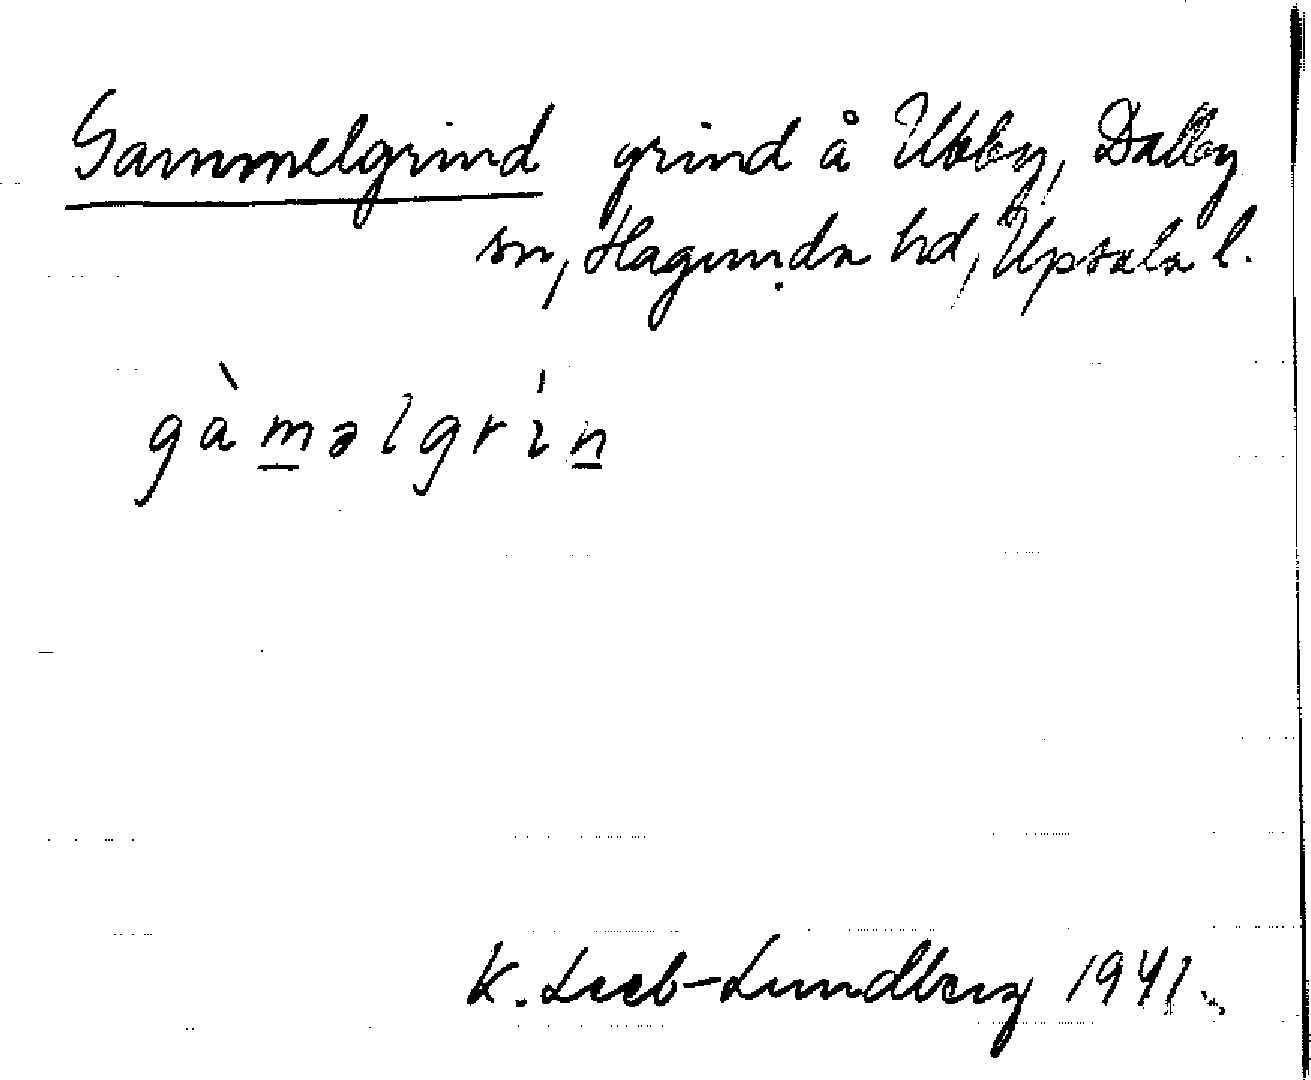 Gammelgrind grind å Ubby, Dalby
sn, Hagunda hd, Upsala l.
gàməlgrín
K. Leeb-Lundberg 1941.